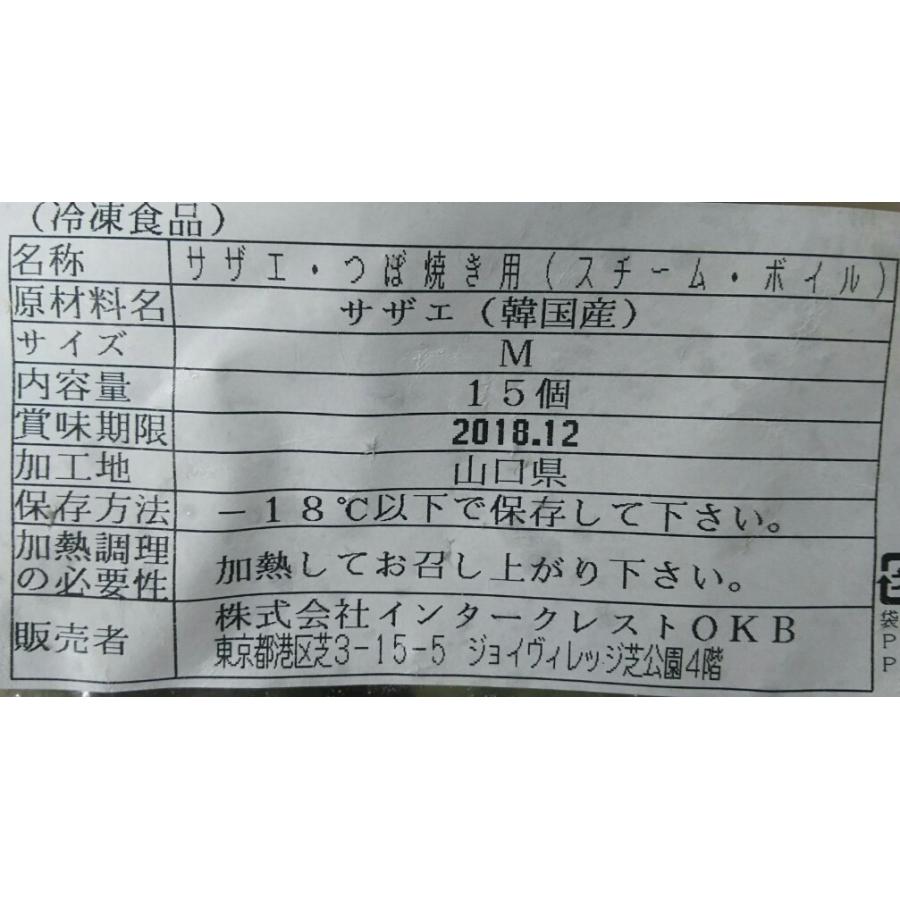 (冷凍食品)
名称 サザエ・つぼ焼き用(スチーム・ボイル)
原材料名 サザエ(韓国産)
サイズ M
内容量 15個
賞味期限 2018.12
加工地 山口県
保存方法 -18℃以下で保存して下さい。
加熱調理
の必要性 加熱してお召し上がり下さい。
販売者 株式会社インタークレストOKB
東京都港区芝3-15-5 ジョイヴィレッジ芝公園4階
袋PP